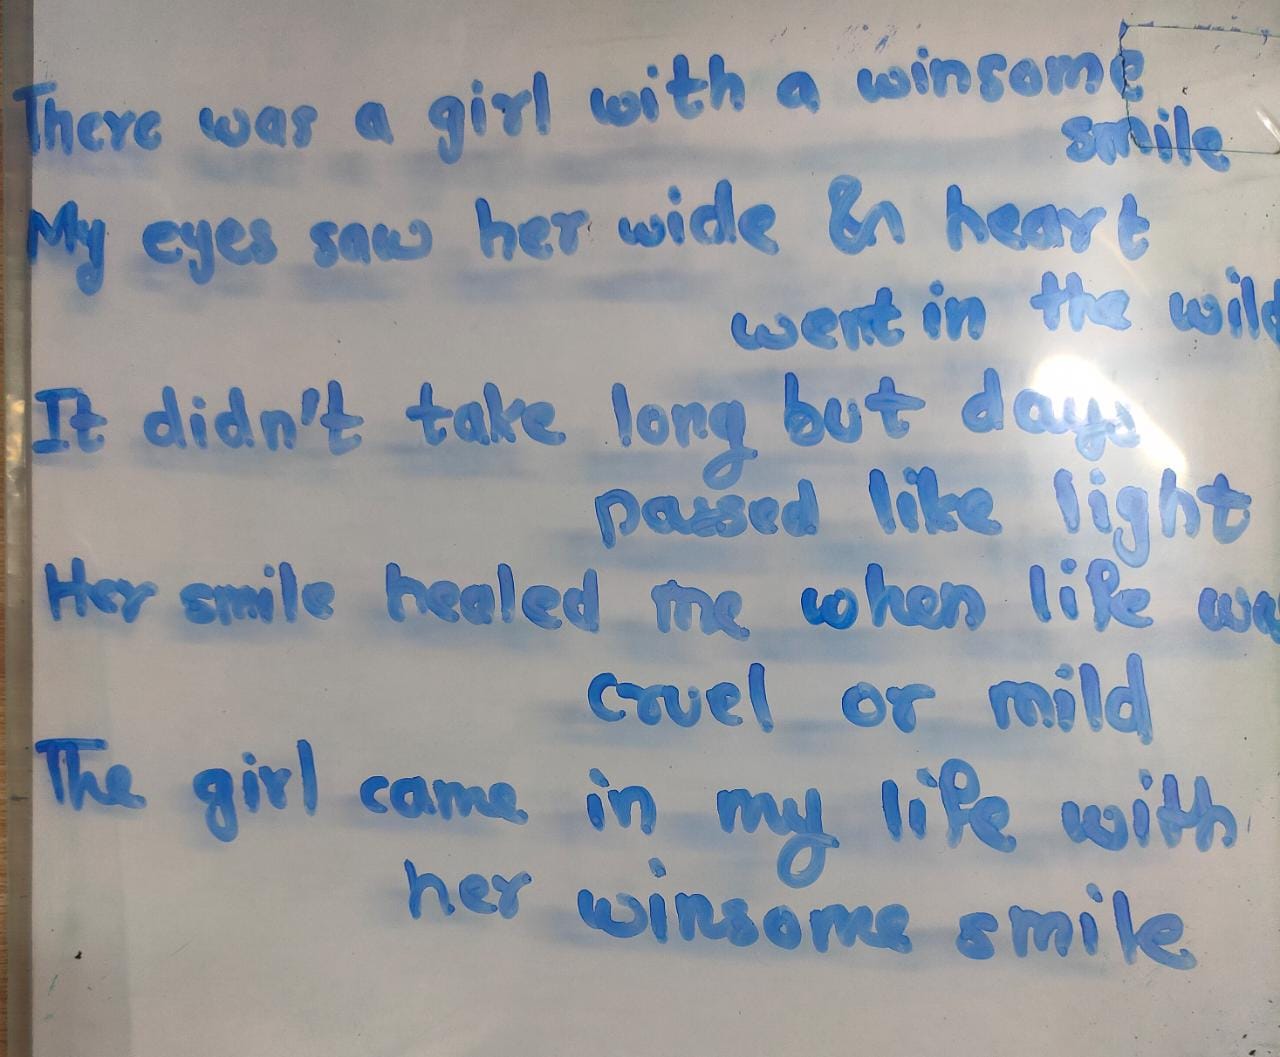 There was a girl with a winsome
smile
My eyes saw her wide & heart
went in the wild
It didn't take long but days
passed like light
Her smile healed me when life wa
cruel or mild
The girl came in my life with
her winsome smile